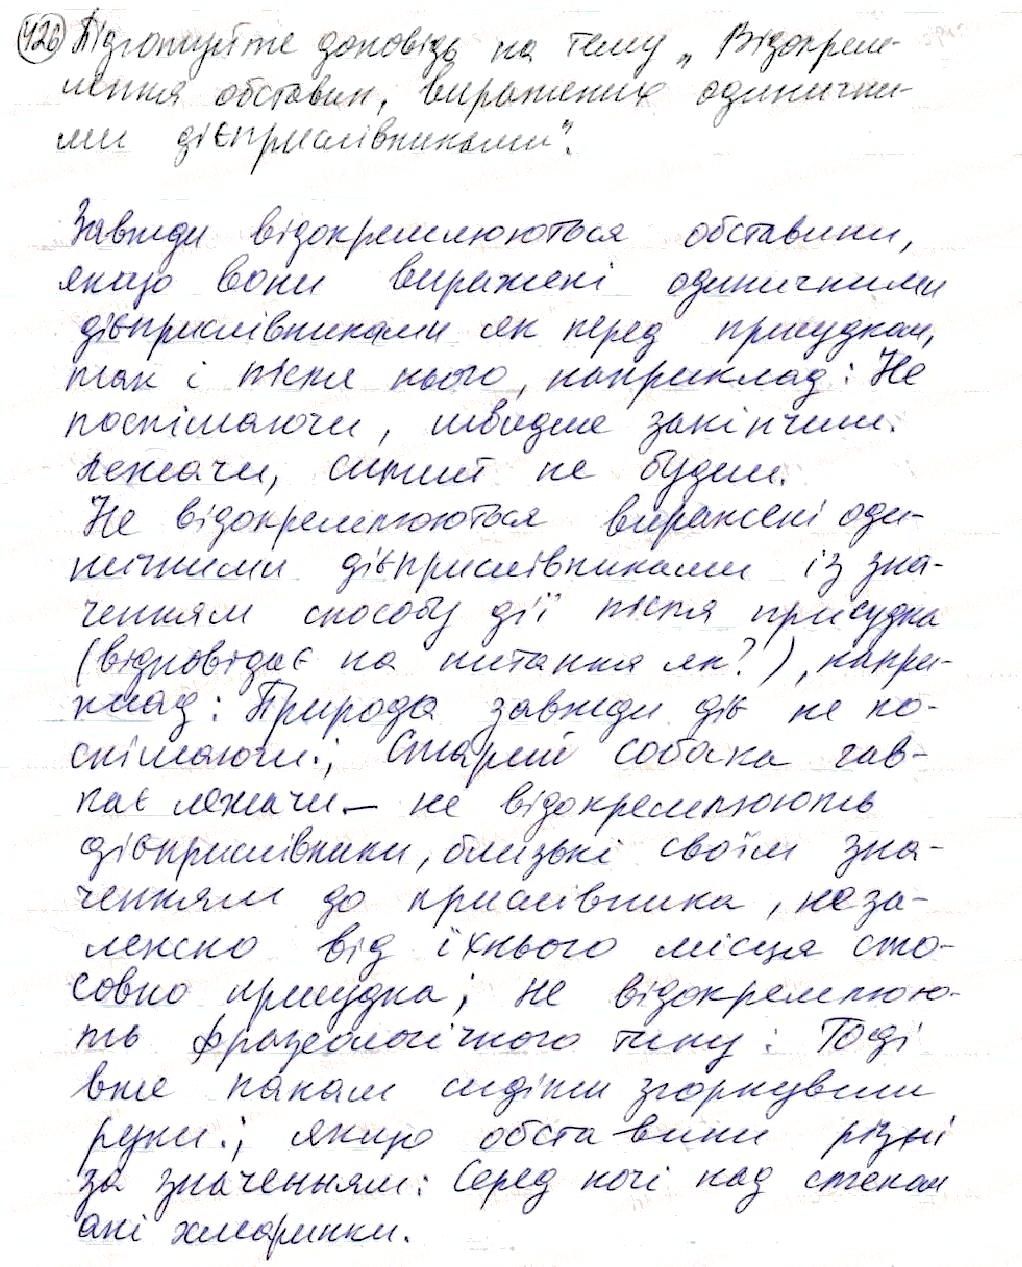 426 Підготуйте доповідь на тему „Відокрем-
лення обставин, виражених одинични-
ми дієприслівниками".
Завжди відокремлюються обставини,
якщо вони виражені одиничними
дієприслівниками як перед присудком,
так і після нього, наприклад: Не
поспішаючи, швидше закінчиш.
Лежачи, ситий не будеш.
Не відокремлюються виражені оди-
ничними дієприслівниками із зна-
ченням способу дії після присудка
(відповідає на питання як?), напри-
клад: Природа завжди діє не по-
спішаючи.; Старий собака гав-
кає лежачи – не відокремлюють
дієприслівники, близькі своїм зна-
ченням до прислівника, неза-
лежно від їхнього місця сто-
совно присудка; не відокремлюю-
ть фразеологічного типу: Тоді
вже панам сидіти згорнувши
руки.; якщо обставини різні
за значенням: Серед ночі над степом
ані хмаринки.